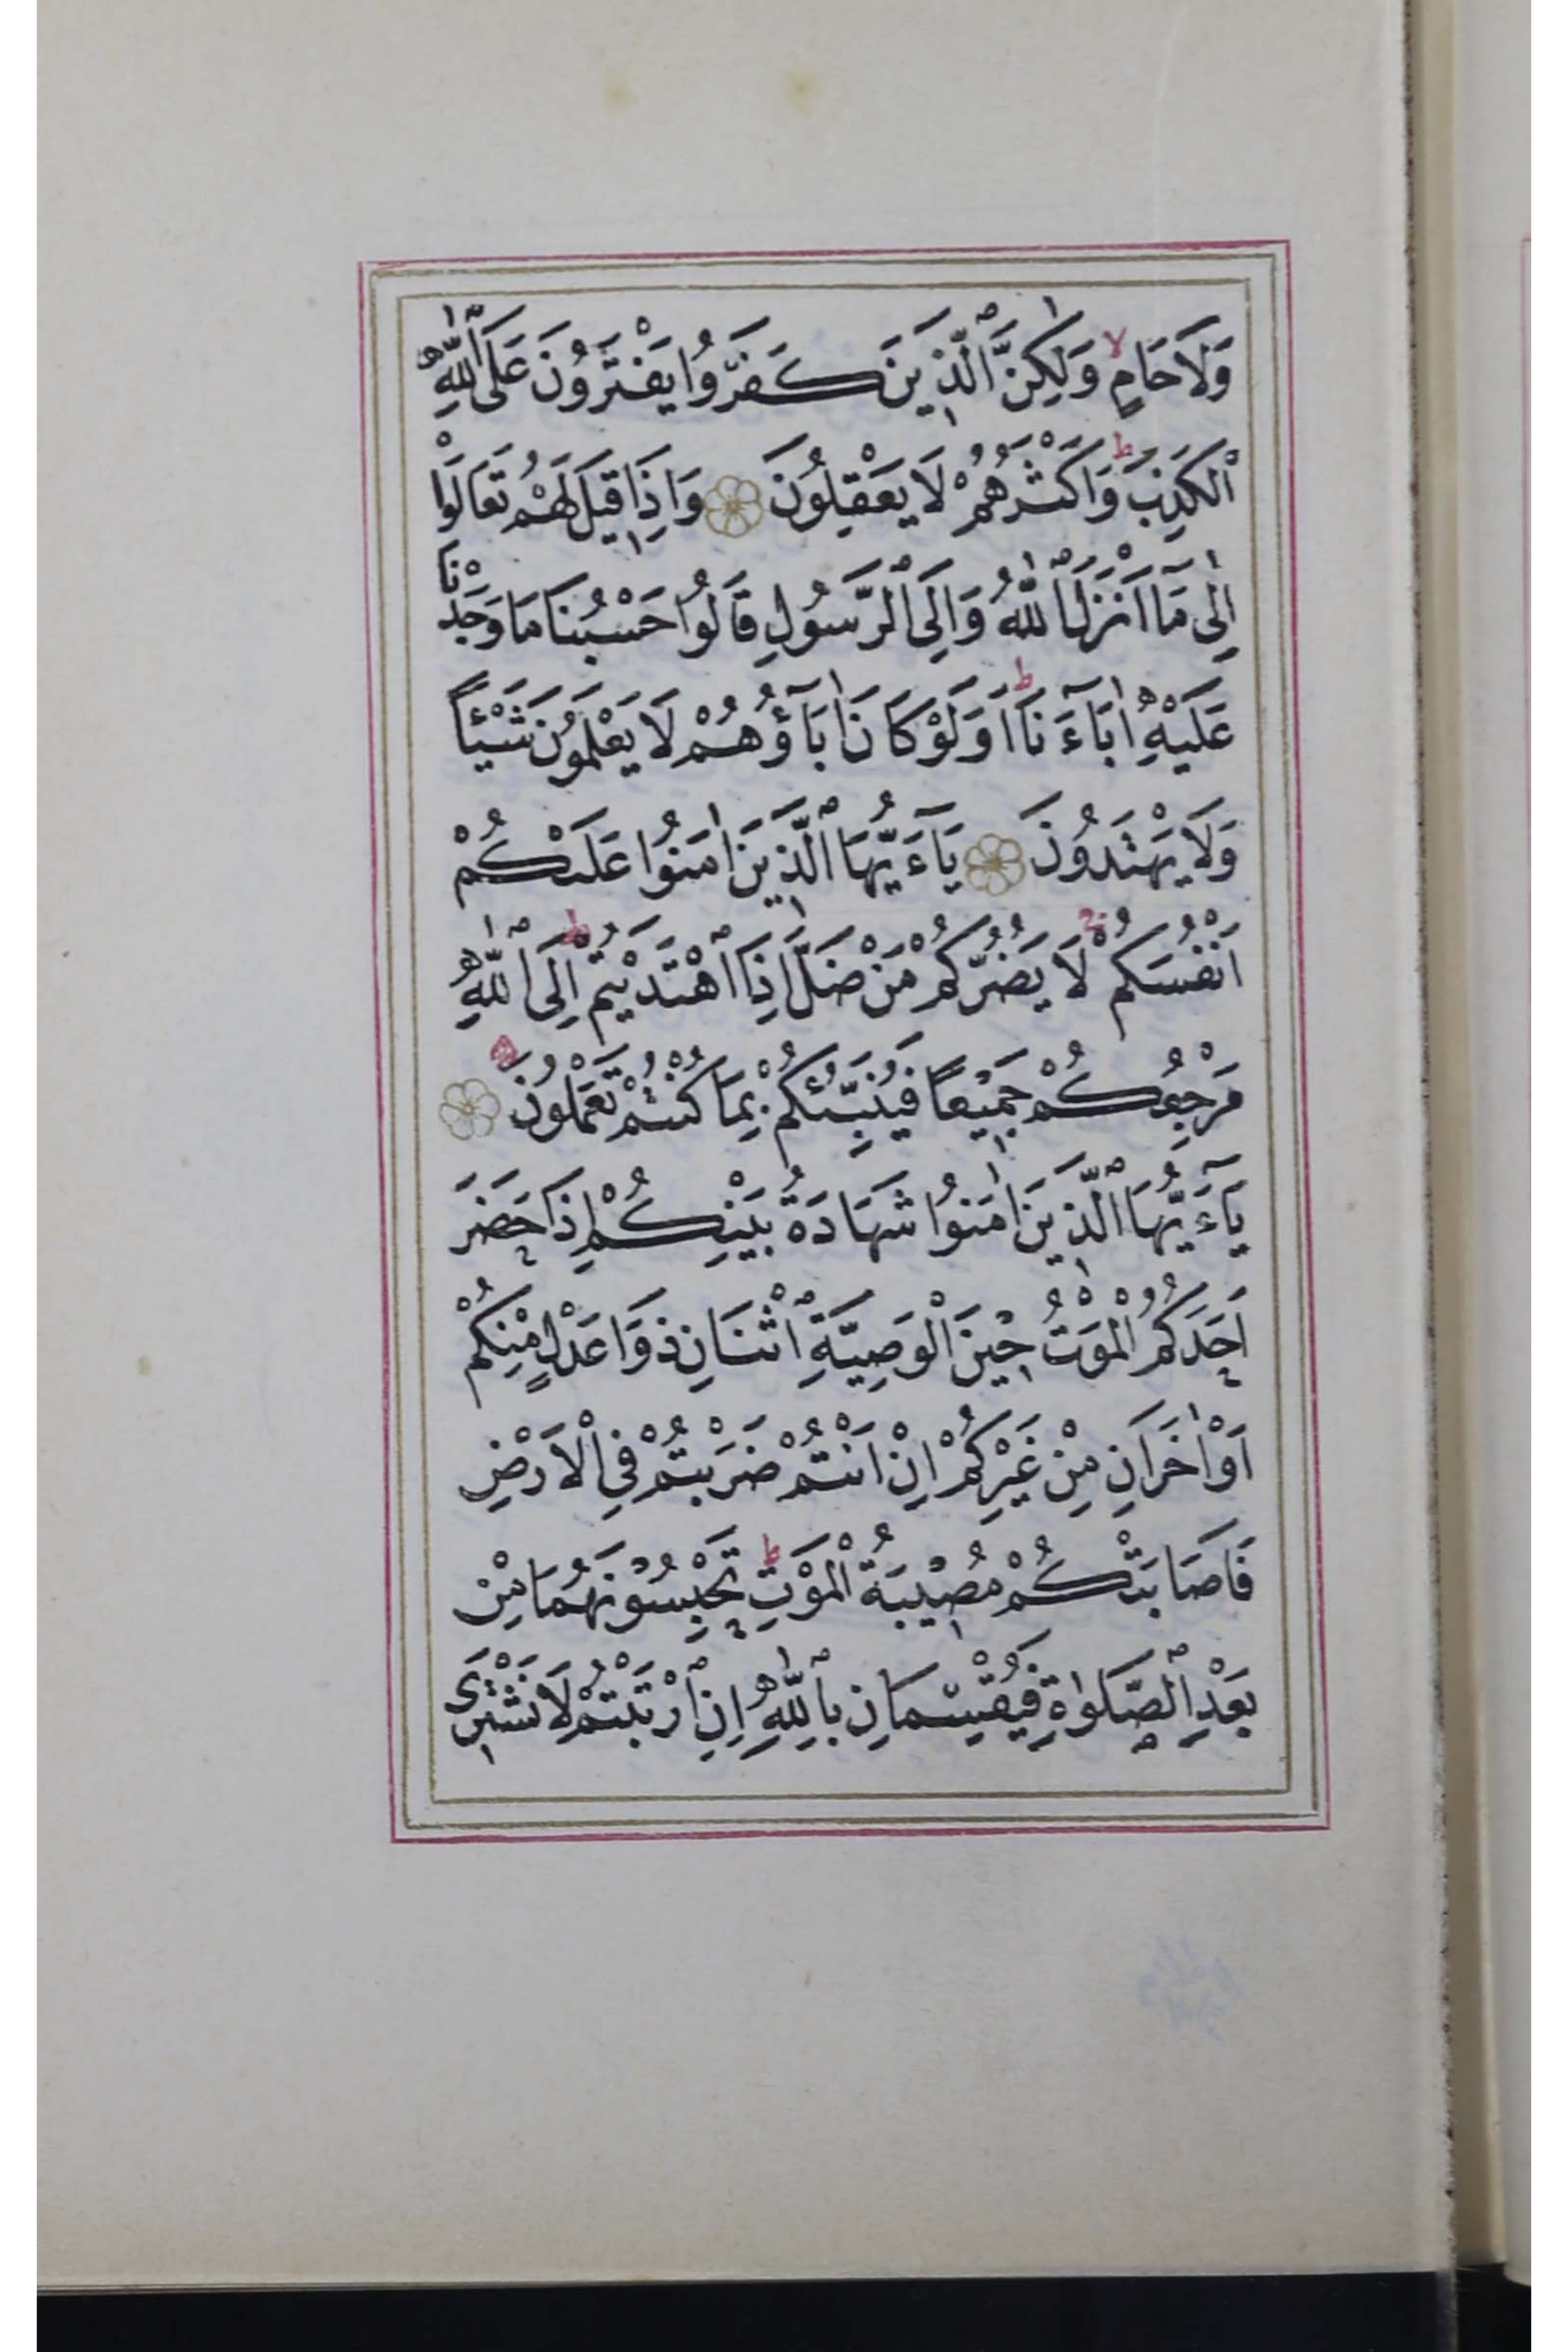 وَلَا حَامٍ وَلٰكِنَّ ٱلَّذِينَ كَفَرُوا يَفْتَرُونَ عَلَى ٱللّٰهِ
ٱلْكَذِبَ وَاَكْثَرُهُمْ لَا يَعْقِلُونَ وَاِذَا قِيلَ لَهُمْ تَعَالَوْا
اِلٰى مَآ اَنْزَلَ ٱللّٰهُ وَاِلَى ٱلرَّسُولِ قَالُوا حَسْبُنَا مَا وَجَدْنَا
عَلَيْهِ اٰبَآءَنَا اَوَلَوْ كَانَ اٰبَآؤُهُمْ لَا يَعْلَمُونَ شَيْئًا
وَلَا يَهْتَدُونَ يَآءَيُّهَا ٱلَّذِينَ اٰمَنُوا عَلَيْكُمْ
اَنْفُسَكُمْ لَا يَضُرُّكُمْ مَنْ ضَلَّ اِذَا ٱهْتَدَيْتُمْ اِلَى ٱللّٰهِ
مَرْجِعُكُمْ جَمِيْعًا فَيُنَبِّئُكُمْ بِمَا كُنْتُمْ تَعْمَلُونَ
يَآءَيُّهَا ٱلَّذِينَ اٰمَنُوا شَهَادَةُ بَيْنِكُمْ اِذَا حَضَرَ
اَحَدَكُمُ الْمَوْتُ حِيْنَ الْوَصِيَّةِ ٱثْنَانِ ذَوَا عَدْلٍ مِنْكُمْ
اَوْ اٰخَرَانِ مِنْ غَيْرِكُمْ اِنْ اَنْتُمْ ضَرَبْتُمْ فِي الْاَرْضِ
فَاَصَابَتْكُمْ مُصِيْبَةُ الْمَوْتِ تَحْبِسُوْنَهُمَا مِنْ
بَعْدِ ٱلصَّلَوٰةِ فَيُقْسِمَانِ بِٱللّٰهِ اِنِ ٱرْتَبْتُمْ لَا نَشْتَرِى